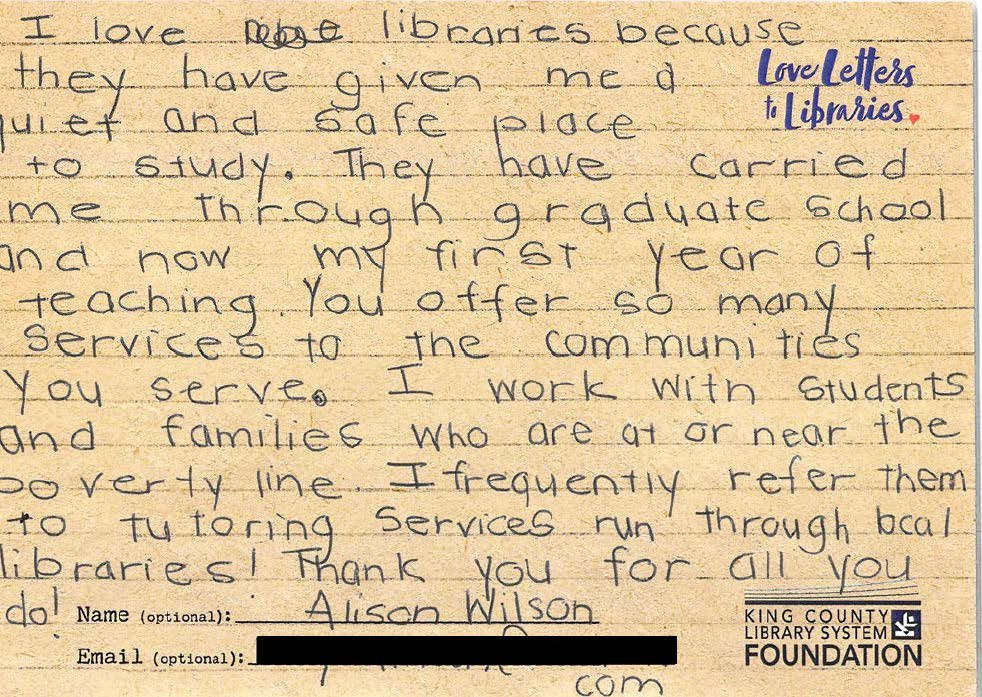 I love libraries because
they have given me a
quiet and safe place
to study. They have carried
me through graduate school
and now my first year of
teaching. You offer so many
services to the communities
you serve. I work with students
and families who are at or near the
poverty line. I frequently refer them
to tutoring services run through local
libraries! Thank you for all you
do!
Love Letters
to Libraries
Name (optional): Alison Wilson
Email (optional):
com
KING COUNTY
LIBRARY SYSTEM
FOUNDATION